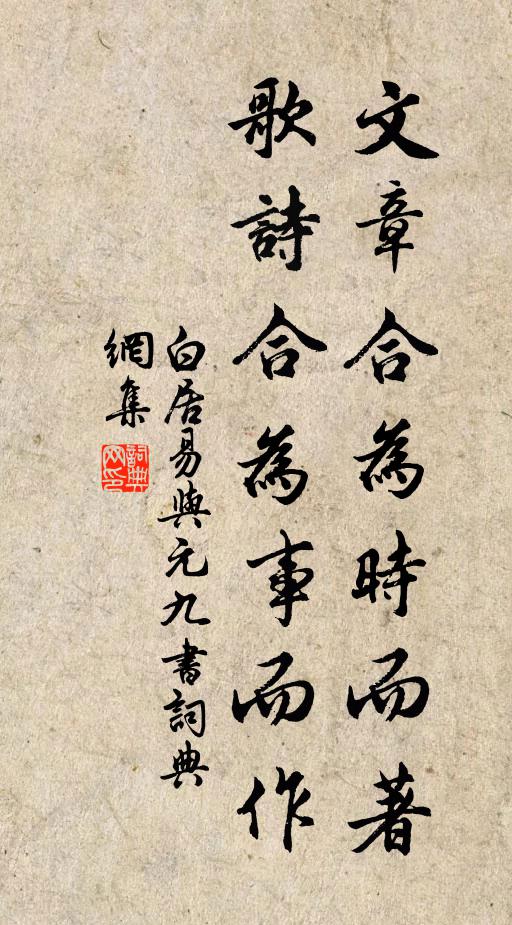 文章合為時而著
歌詩合為事而作
白居易與元九書詞典
網集
詞典
網印